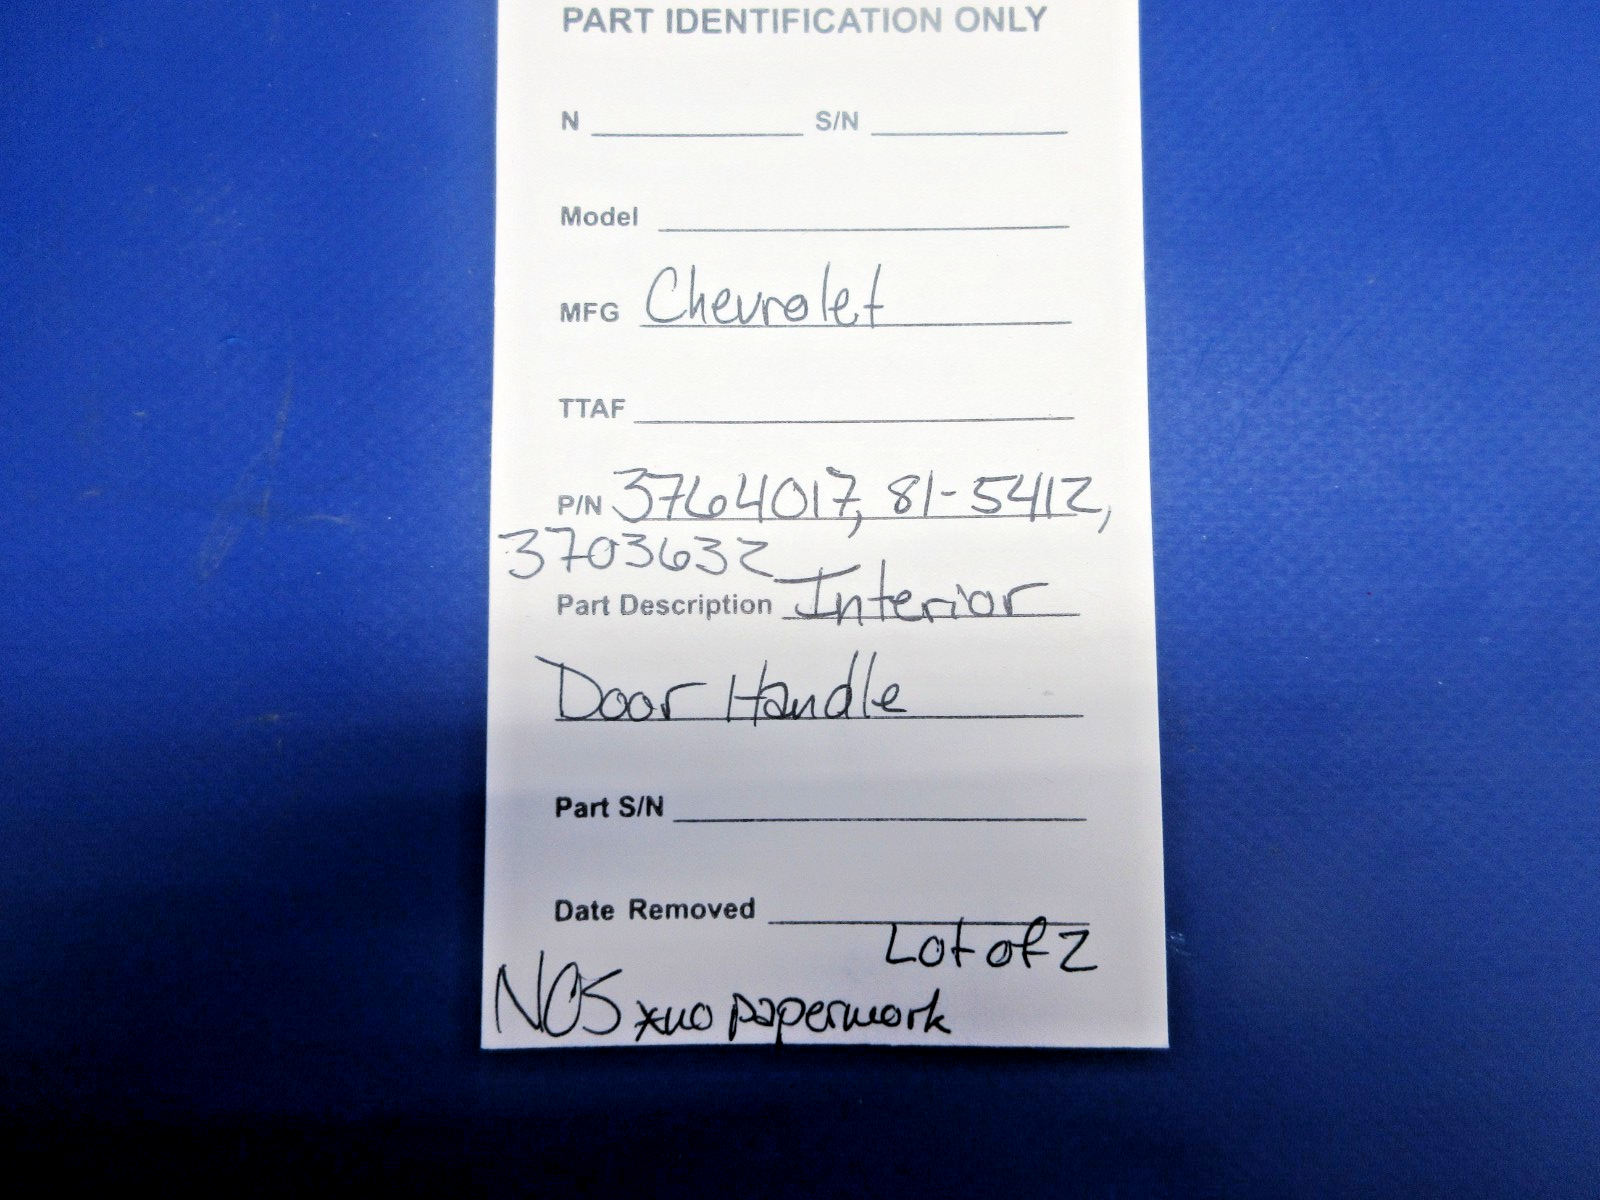 PART IDENTIFICATION ONLY
N S/N
Model
MFG Chevrolet
TTAF
P/N 3764017, 81-5412,
3703632
Part Description Interior
Door Handle
Part S/N
Date Removed
Lot of 2
NOS *no paperwork